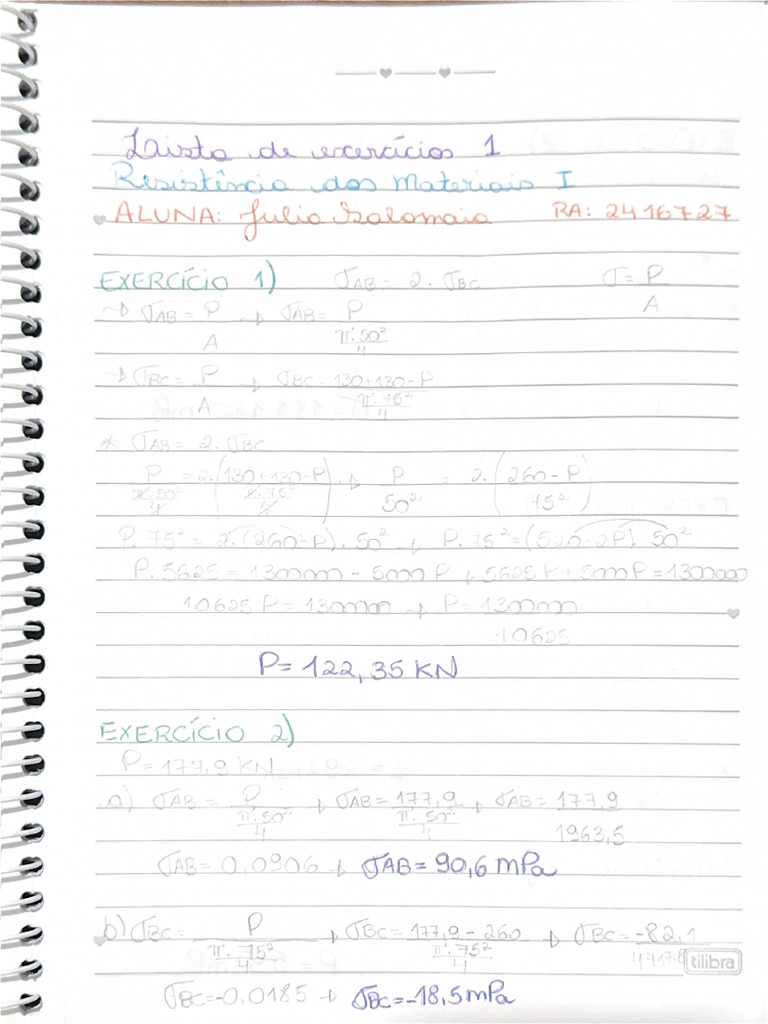 Lista de exercícios 1
Resistência dos Materiais I
ALUNA: Julia Salomaia RA: 2416727
EXERCÍCIO 1) σAB = 2. σBC σ = P/A
→ σAB = P/A → σAB = P/(π.50²/4)
→ σBC = P/A → σBC = 130+130-P/(π.75²/4)
* σAB = 2. σBC
P/(π.50²/4) = 2.(130+130-P/(π.75²/4)) → P/50² = 2.(260-P/75²)
P. 75² = 2.(260-P). 50² → P. 75² = (520-2P) 50²
P. 5625 = 1300000 - 5000P → 5625P + 5000P = 1300000
10625 P = 1300000 → P = 1300000/10625
P = 122,35 KN
EXERCÍCIO 2)
P = 177,9 KN
a) σAB = P/(π.50²/4) → σAB = 177,9/(π.50²/4) → σAB = 177,9/1963,5
σAB = 0,0906 → σAB = 90,6 mPa
b) σBC = P/(π.75²/4) → σBC = 177,9 - 260/(π.75²/4) → σBC = -82,1/4417,8
tilibra
σBC = -0,0185 → σBC = -18,5 mPa